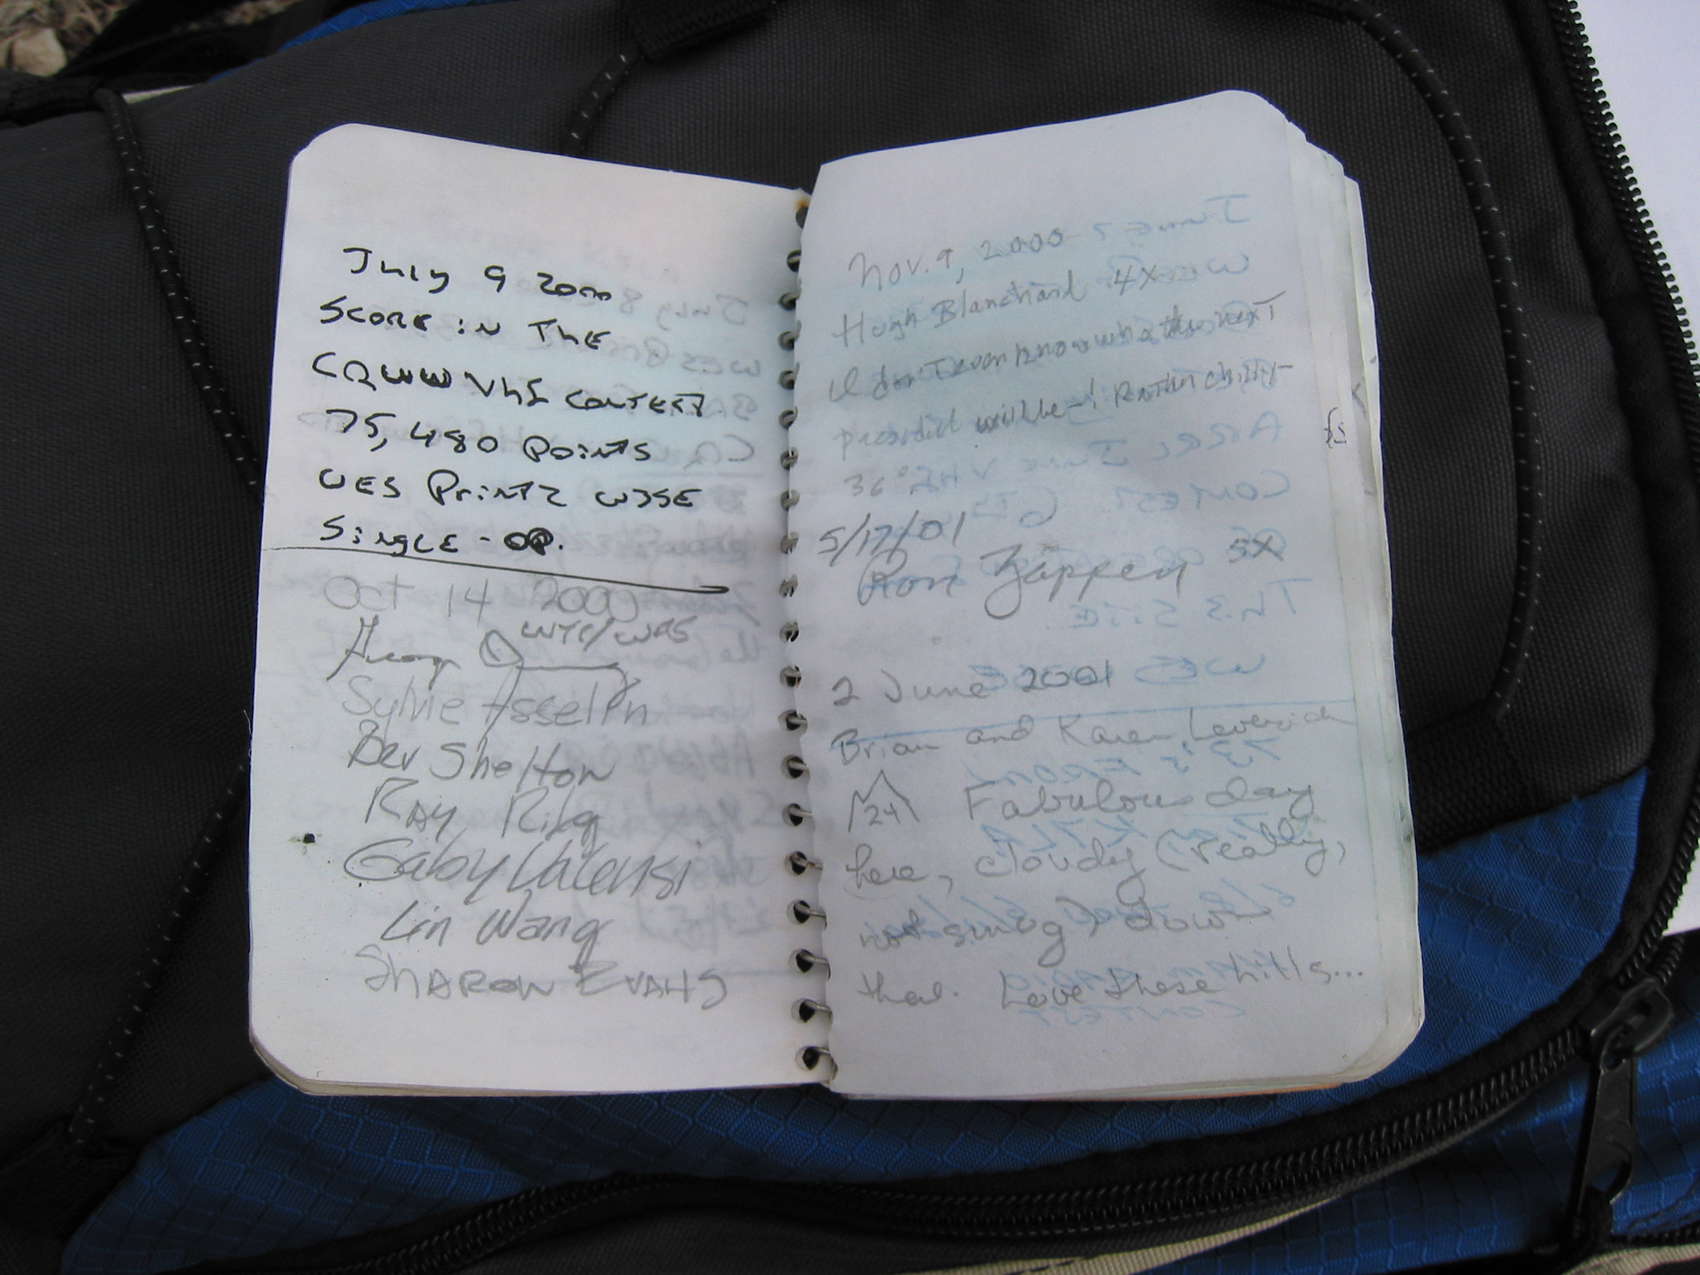 July 9 2000
SCORE iN THE
CQWW VHF CONTEST
75,480 POiNTS
WES PriNTZ W3SE
SiNgLE-OP.
Oct 14 2000
WTC/WAS
Sylvie Asselin
Bev Shelton
RAY Riley
Gaby Valensi
Lin Wang
SHARON EVANS
Nov. 9, 2000
Hugh Blanchard 4X
I don't even know who the next
president will be-! Rather chilly-
36°
5/17/01
Ron Zappen 5X
2 June 2001
Brian and Karen Leverich
24 Fabulous day
here, cloudy (really,
not smog) down
there. Love these hills...